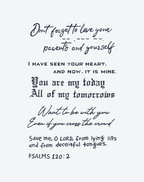 Don't forget to love your
parents and yourself
I HAVE SEEN YOUR HEART,
AND NOW, IT IS MINE.
You are my today
All of my tomorrows
Want to be with you
Even if you cross the world
Save me, O LORD, from lying lips
and from deceitful tongues.
PSALMS 120:2